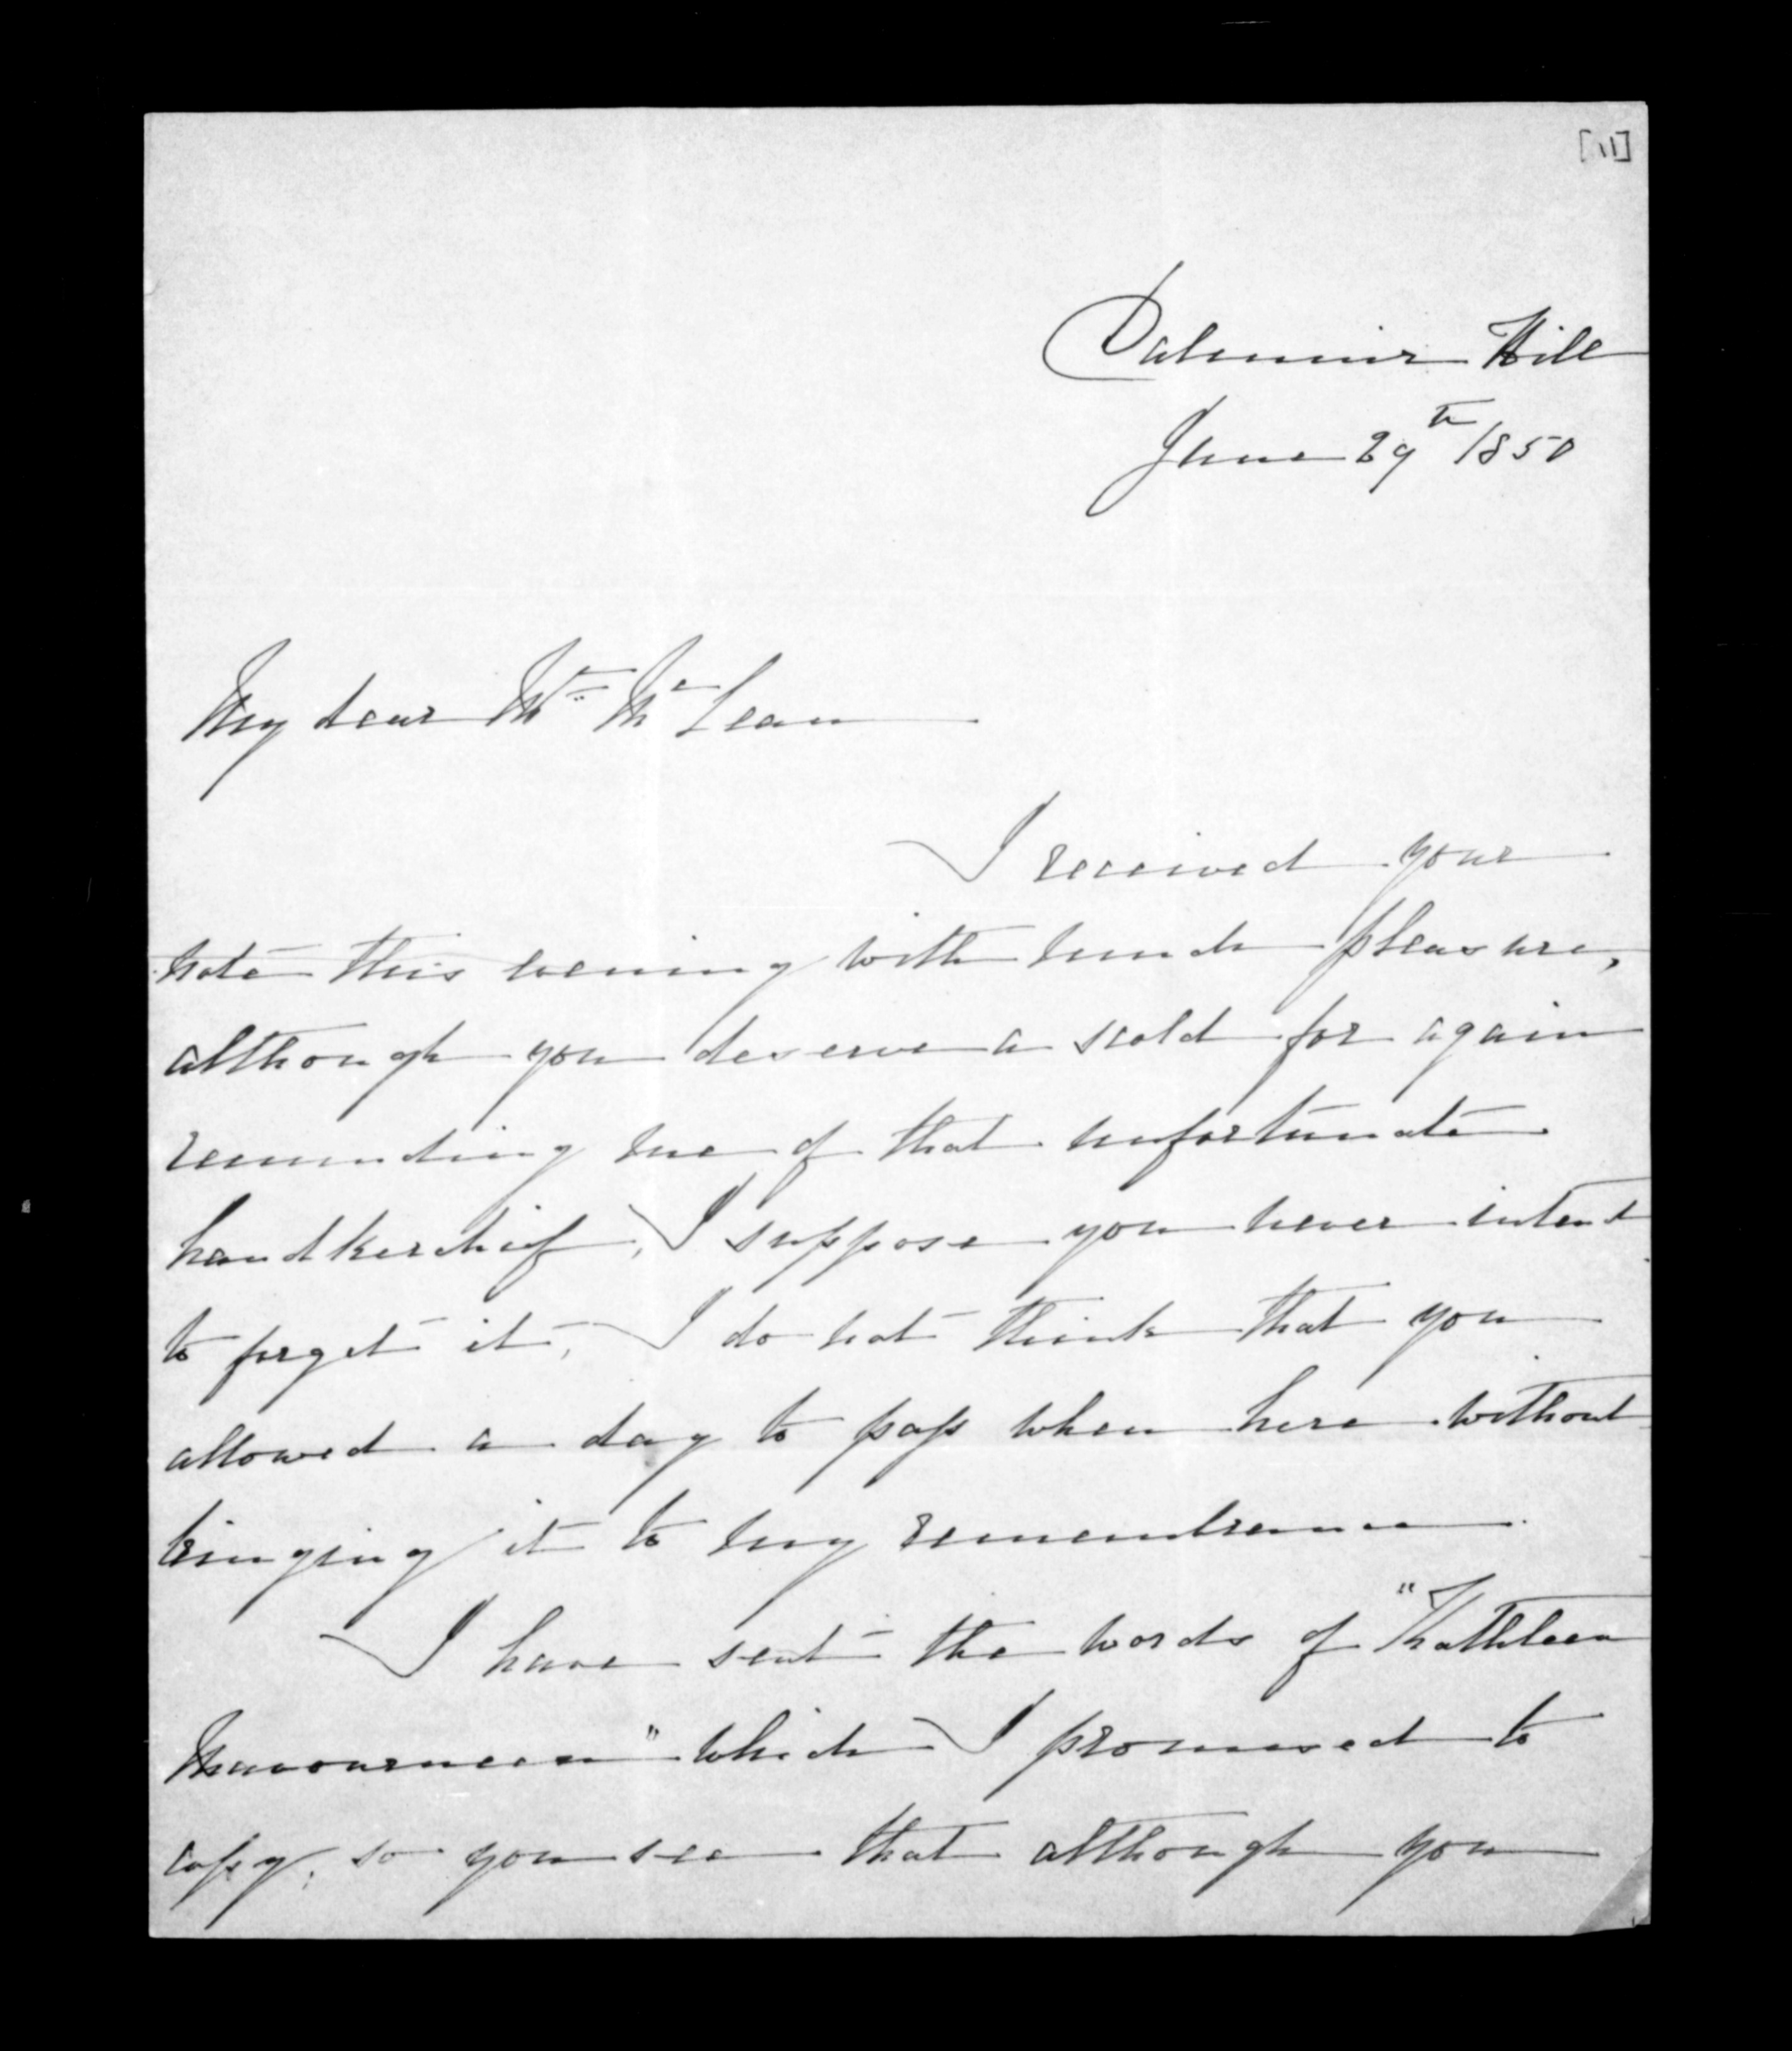 [11]
Dalmuir Hill
June 29th 1850
My dear Mr McLean
I received your
note this evening with much pleasure,
although you deserve a scold for again
reminding me of that unfortunate
handkerchief, I suppose you never intend
to forget it, I do not think that you
allowed a day to pass when here without
bringing it to my remembrance.
I have sent the words of "Kathleen
Mavourneen" which I promised to
copy, so you see that although you